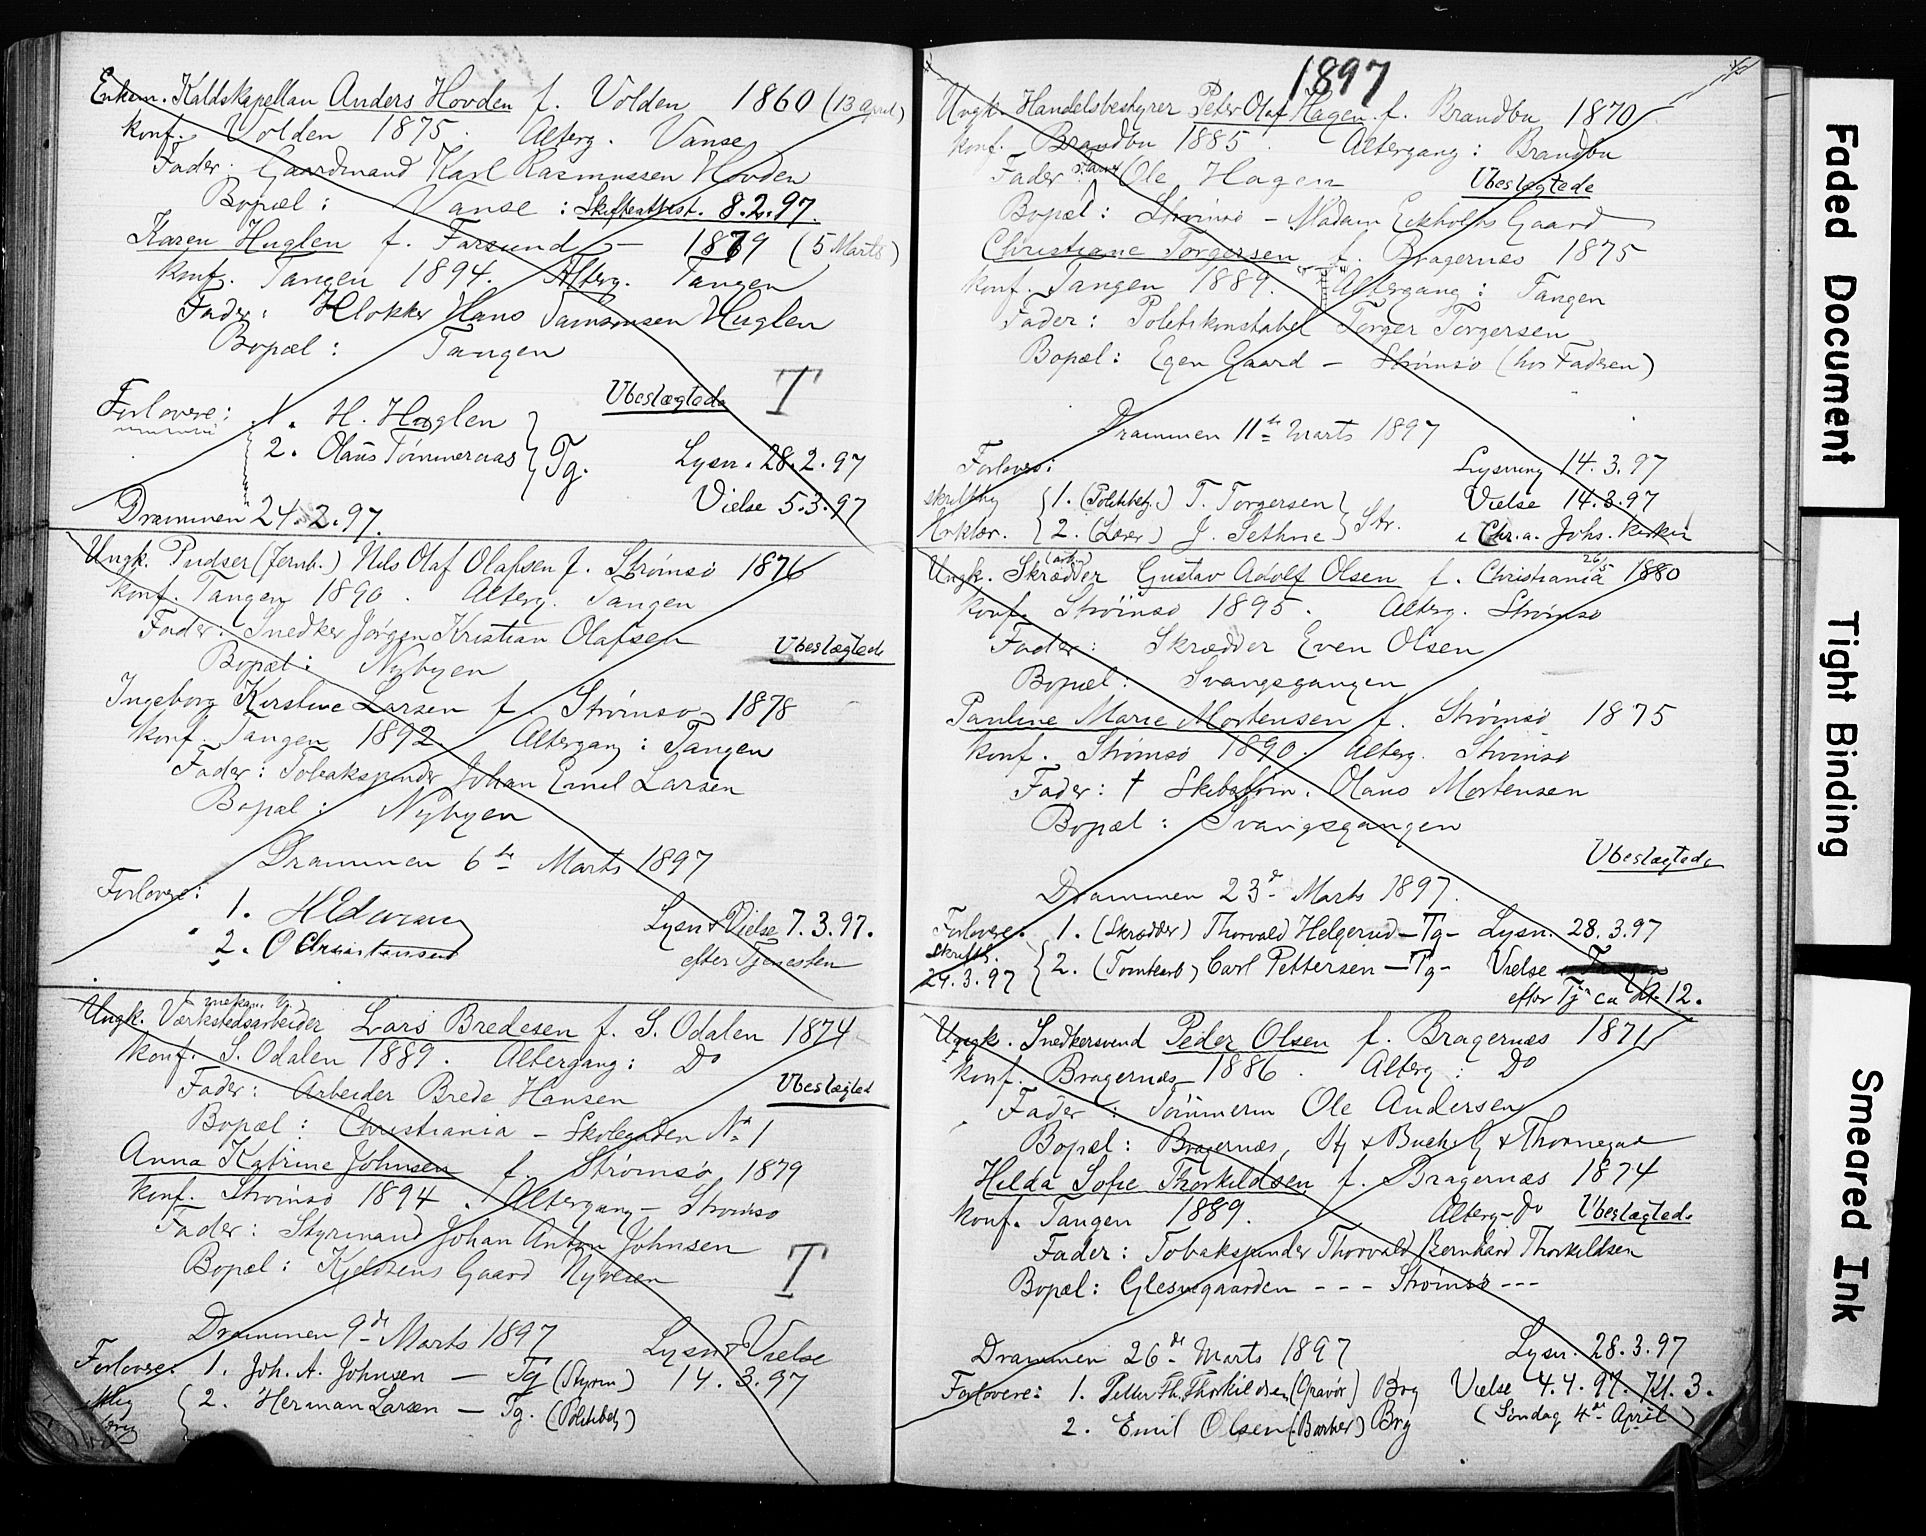 Enkem. Kaldskapellan Anders Hovden f. Volden 1860 (13 April)
konf. Volden 1875. Alterg. Vanse
Fader: Gaardmand Karl Rasmussen Hovden
Bopæl: Vanse: Skifteattest. 8.2.97.
Karen Huglen f. Farsund – 1879 (5 Marts)
konf. Tangen 1894. Alterg. Tangen
Fader: Klokker Hans Huglen
Bopæl: Tangen
Ubeslægtede T
Forlovere: 1. H. Huglen
2. Olaus Tømmeraas } Tg. Lysn. 28.2.97
Vielse 5.3.97
Drammen 24.2.97.
Ungk. Pudser (Jernb.) Nils Olaf Olafsen f. Strømsø 1876
konf. Tangen 1890. Alterg. Tangen
Fader: Snedker Jørgen Kristian Olafsen
Ubeslægtede
Bopæl: Nybyen
Ingeborg Kirstine Larsen f. Strømsø 1878
konf. Tangen 1892 Altergang: Tangen
Fader: Tobakspinder Johan Emil Larsen
Bopæl: Nybyen
Drammen 6te Marts 1897
Forlovere:
1. H Edvran
Lysn & Vielse 7.3.97.
2. O Christensen
efter Tjenesten
mekan. V.
Ungk. Værkstedsarbeider Lars Bredesen f. S. Odalen 1874
konf. S. Odalen 1889. Altergang: Do
Ubeslægted
Fader: Arbeider Brede Hansen
Bopæl: Christiania – Skolegaden No 1
Anna Katrine Johnsen f. Strømsø 1879
konf. Strømsø 1894. Altergang – Strømsø
Fader: Styrmand Johan Anton Johnsen
Bopæl: Kjeldsens Gaard Nyveien T
Drammen 9de Marts 1897 Lysn & Vielse
Forlovere: 1. Joh. A. Johnsen — Tg (Styrm) 14.3.97
2. Herman Larsen – Tg. (Politibetj)
1897
Ungk. Handelsbestyrer Peter Olaf Hagen f. Brandbu 1870
konf. Brandbu 1885. Altergang: Brandbu
Fader Ole Hagen Ubeslægtede
Bopæl: Strømsø – Madam Eckholts Gaard
Christiane Torgersen f. Bragernæs 1875
konf. Tangen 1889. Altergang: Tangen
Fader: Politikonstabel Torger Torgersen
Bopæl: Egen Gaard – Strømsø (hos Faderen)
Drammen 11te Marts 1897
Forlovere: Lysning 14.3.97
skriftlig { 1. (Politibetj.) T. Torgersen } Vielse 14.3.97
Erklær. { 2. (Lærer) J. Sethne } Str. i Chr.a. Johs. Kirken
(arb.)
Ungk. Skrædder Gustav Adolf Olsen f. Christiania 26/5 1880
konf. Strømsø 1895. Alterg. Strømsø
Fader: Skrædder Even Olsen
Bopæl: Svangsgangen
Pauline Marie Mortensen f. Strømsø 1875
konf. Strømsø 1890. Alterg. Strømsø
Fader: † Skibstøm. Olaus Mortensen
Bopæl: Svangsgangen
Ubeslægtede
Drammen 23de Marts 1897.
Forlovere: 1. (Skrædder) Thorvald Helgerud – Tg – Lysn. 28.3.97
Skriftl.
24.3.97 { 2. (Tomtearb) Carl Pettersen – Tg – Vielse
efter Tjn ca Kl. 12.
Ungk. Snedkersvend Peder Olsen f. Bragernæs 1871
konf. Bragernæs 1886. Alterg: Do
Fader: Tømmerm Ole Andersen
Bopæl: Bragernæs, Hj & Buchs G & Thornegat
Hilda Sofie Thorkildsen f. Bragernæs 1874
konf. Tangen 1889. Alterg – Do Ubeslægtede
Fader: Tobakspinder Thorvald Bernhard Thorkildsen
Bopæl: Glesnegaarden – – – Strømsø – – –
Drammen 26de Marts 1897 Lysn. 28.3.97
Forlovere: 1. Petter Th. Thorkildsen (Gravør) Brg Vielse 4.4.97. Kl. 3.
2. Emil Olsen (Barber) Brg (Søndag 4de April)
Faded Document
Tight Binding
Smeared Ink